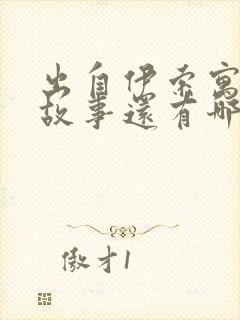 出自伊索寓
故事還有哪
傲才1